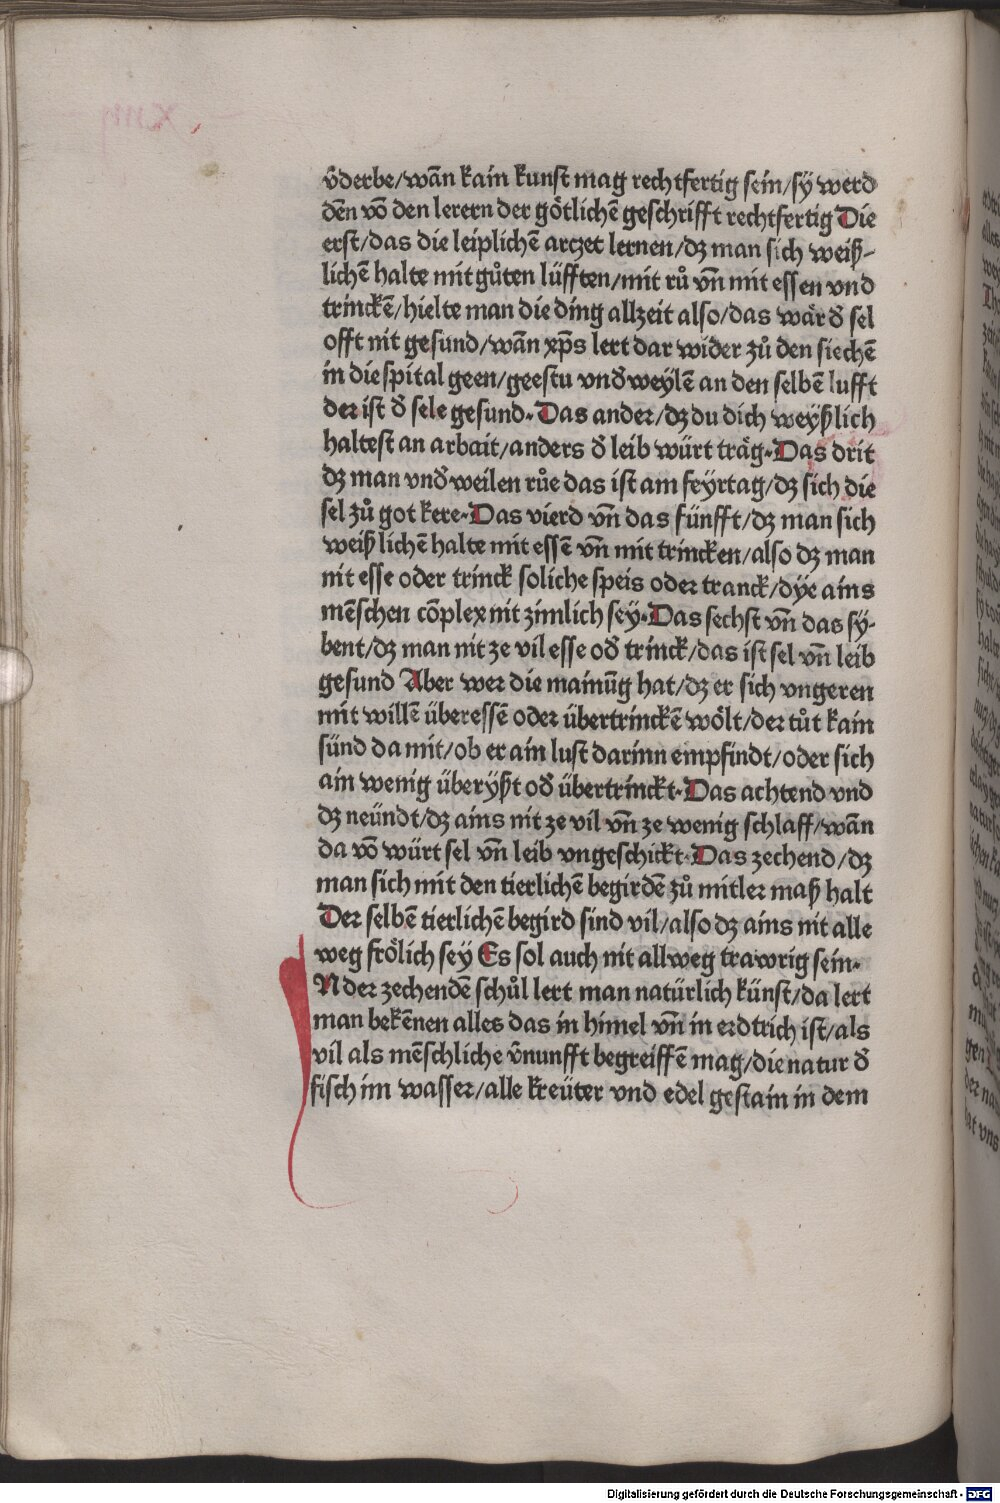 v̄derbe/wān kain kunst mag rechtfertig sein/sÿ werd
dēn vō den lerern der götlichē geschrifft rechtfertig Die
erst/das die leiplichē arczet lernen/dꝫ man sich weiß-
lichē halte mit gůten lüfften/mit rů vn̄ mit essen vnd
trinckē/hielte man die ding allzeit also/das wär d̄ sel
offt nit gesund/wān xp̄s lert dar wider zů den siechē
in die spital geen/geestu vnd̄weylē an den selbē lufft
der ist d̄ sele gesund. Das ander/dꝫ du dich weyßlich
haltest an arbait/anders d̄ leib würt träg. Das drit
dꝫ man vnd̄weilen růe das ist am feyrtag/dꝫ sich die
sel zů got kere. Das vierd vn̄ das fünfft/dꝫ man sich
weißlichē halte mit essē vn̄ mit trincken/also dꝫ man
nit esse oder trinck soliche speis oder tranck/dye ains
mēschen cōplex nit zimlich sey. Das sechst vn̄ das sÿ-
bent/dꝫ man nit ze vil esse od̄ trinck/das ist sel vn̄ leib
gesund Aber wer die mainūg hat/dꝫ er sich vngeren
mit willē überessē oder übertrinckē wölt/der tůt kain
sünd da mit/ob er ain lust darinn empfindt/oder sich
ain wenig überÿßt od̄ übertrinckt. Das achtend vnd
dꝫ neündt/dꝫ ains nit ze vil vn̄ ze wenig schlaff/wān
da vō würt sel vn̄ leib vngeschickt. Das zechend/dꝫ
man sich mit den tierlichē begirdē zů mitler maß halt
Der selbē tierlichē begird sind vil/also dꝫ ains nit alle
weg frölich sey Es sol auch nit allweg trawrig sein.
Nder zechendē schůl lert man natürlich künst/da lert
man bekēnen alles das in himel vn̄ in erdtrich ist/als
vil als mēschliche v̄nunfft begreiffē mag/die natur d̄
fisch im wasser/alle kreüter vnd edel gestain in dem
Digitalisierung gefördert durch die Deutsche Forschungsgemeinschaft - DFG